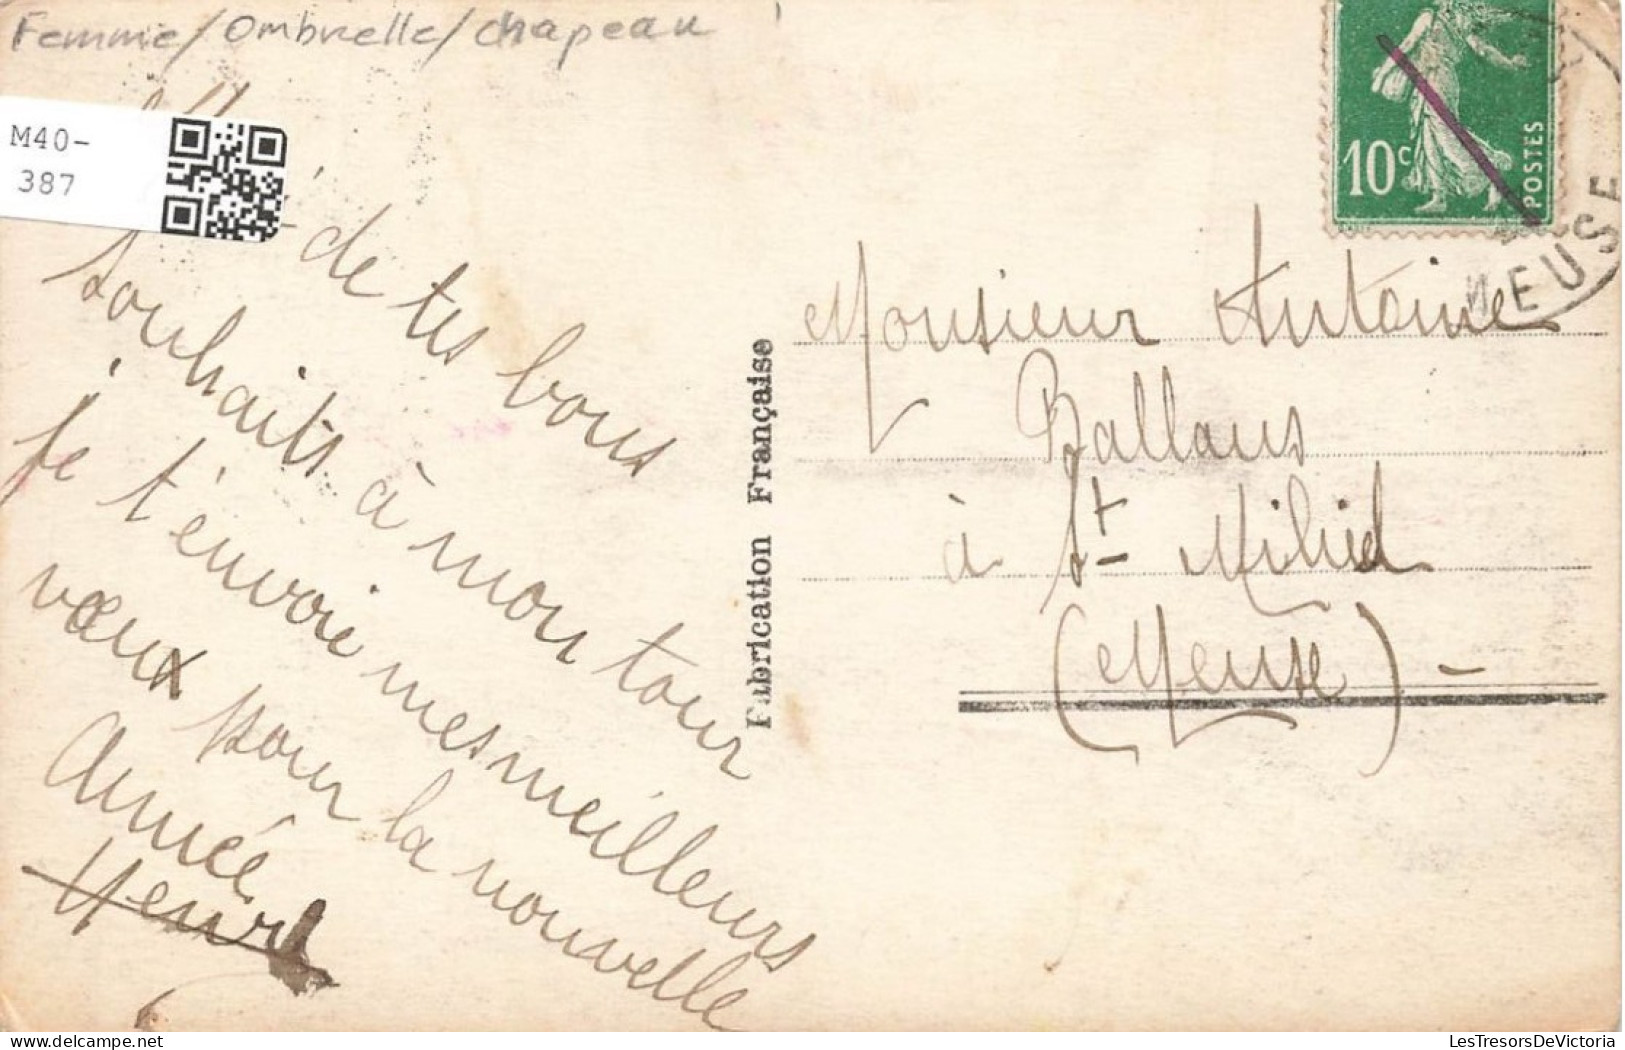 Femme/Ombrelle/chapeau
M40-
387
de tes bons
souhaits à mon tour
je t'envoie mes meilleurs
vœux pour la nouvelle
Année
Henri
Fabrication Française
10c
POSTES
MEUSE
Monsieur Antoine
Ballans
à St Mihiel
(Meuse) -
LesTresorsDeVictoria